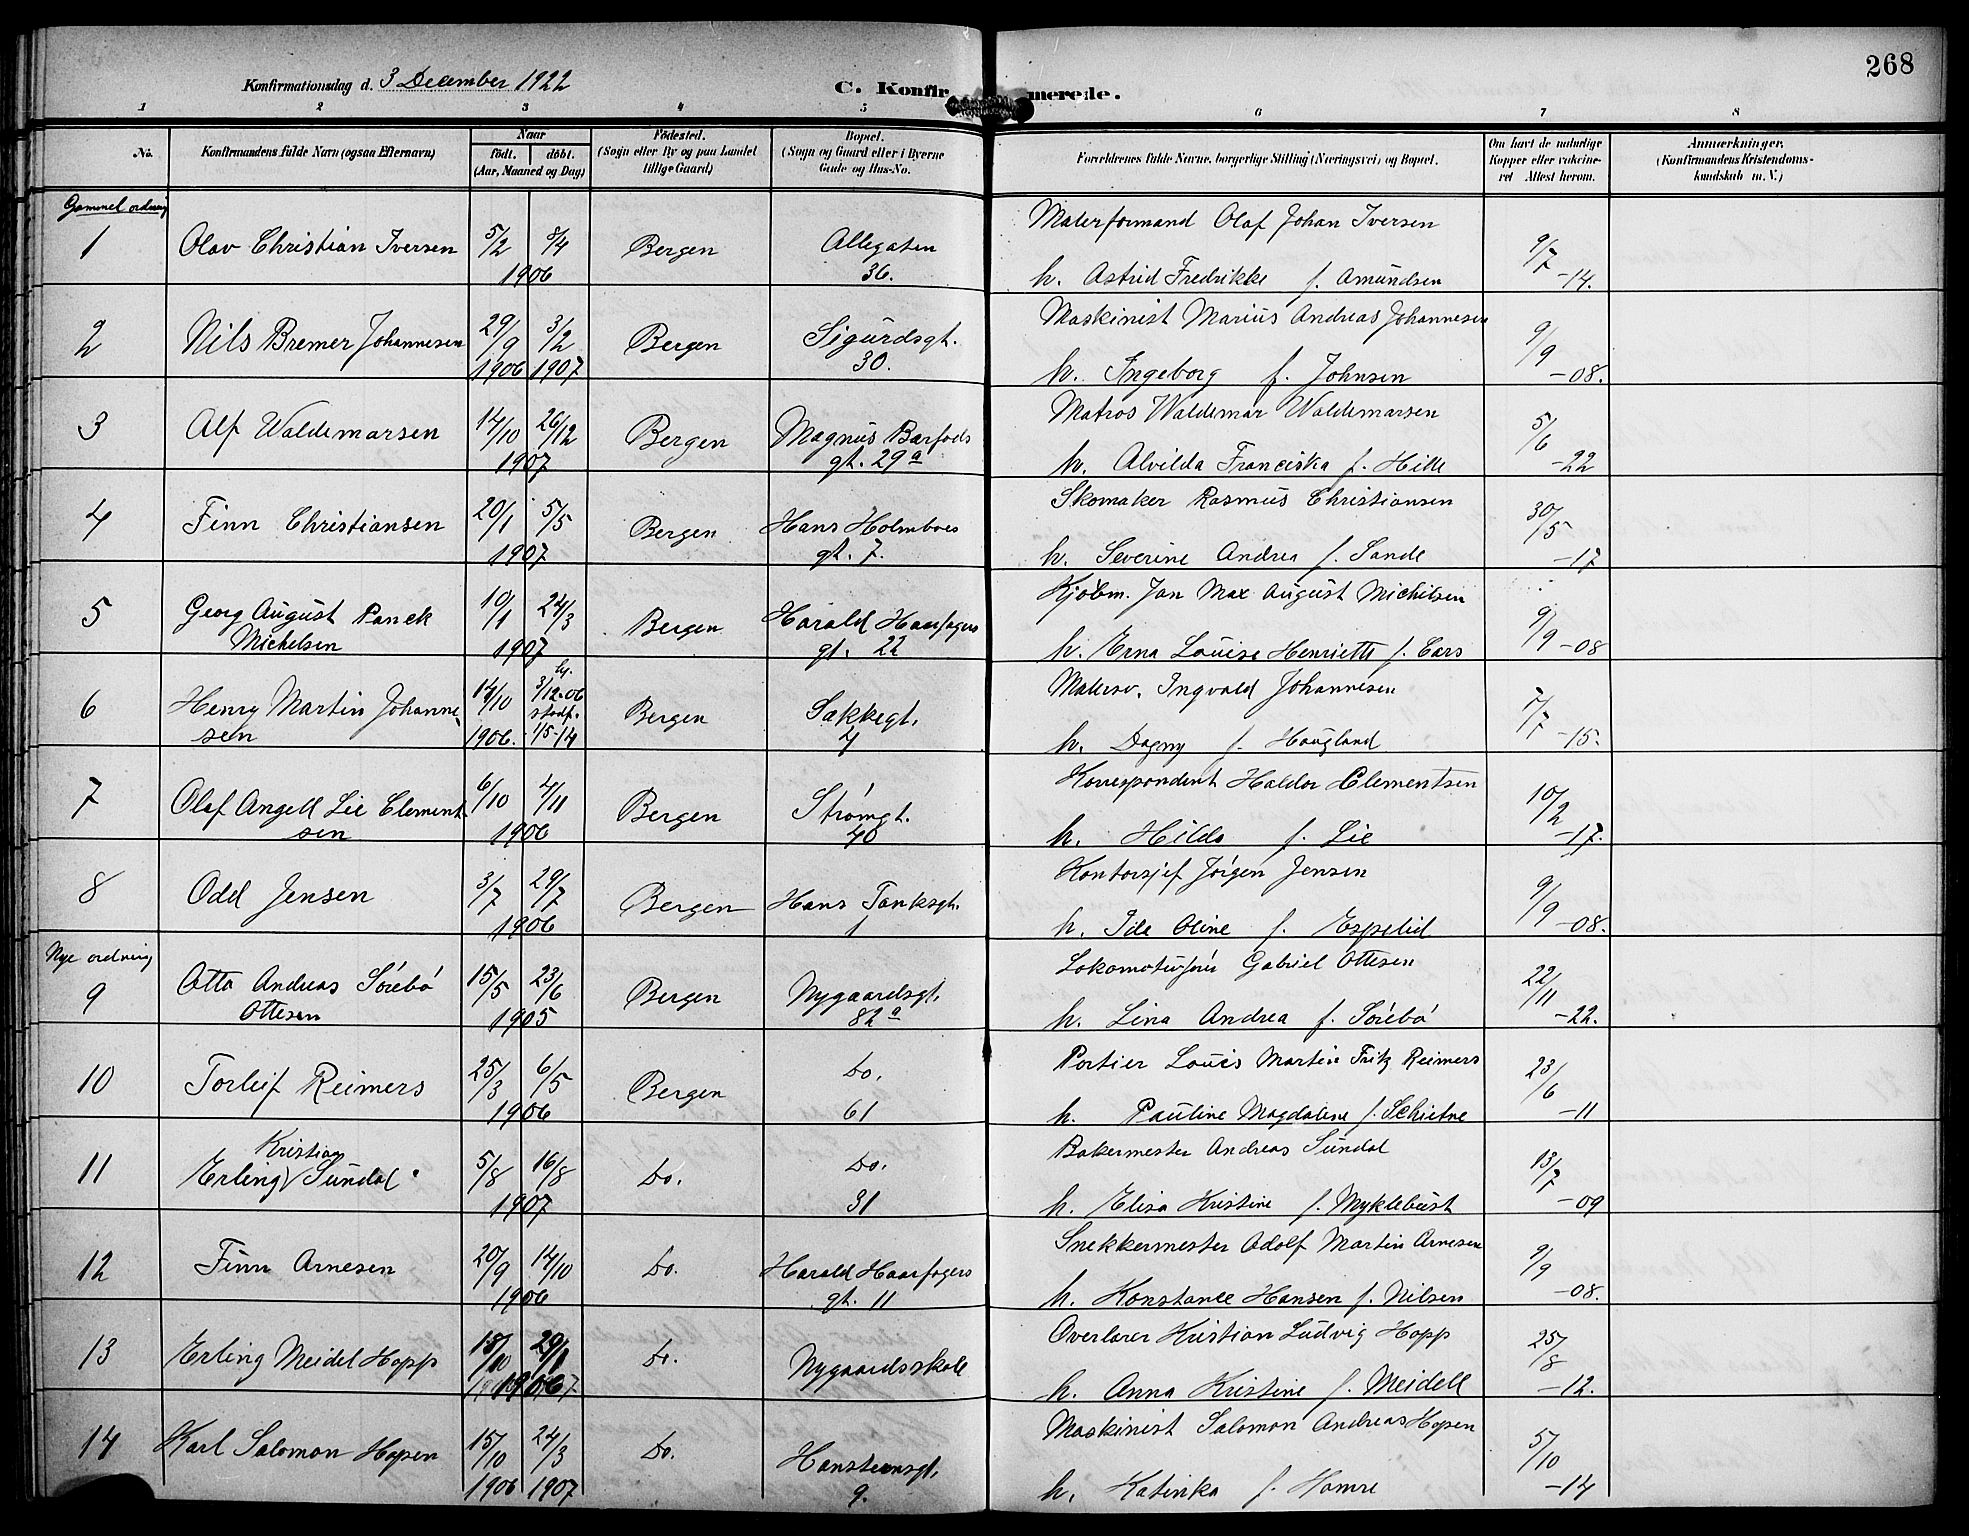 268
Konfirmationsdag d. 3 December 1922
C. Konfirmerede.
1 2 3 4 5 6 7 8
No.
Konfirmandens fulde Navn (ogsaa Efternavn)
Naar
født. døbt.
(Aar, Maaned og Dag)
Fødested.
(Sogn eller By og paa Landet
tillige Gaard)
Bopæl.
(Sogn og Gaard eller i Byerne
Gade og Hus-No.
Forældrenes fulde Navne, borgerlige Stilling (Næringsvei) og Bopæl.
Om havt de naturlige
Kopper eller vakcine-
ret Attest herom.
Anmærkninger.
(Konfirmandens Kristendoms-
kundskab m. V.)
Gammel ordning
1 Olav Christian Iversen 5/2 8/4 Bergen Allegaten Malerformand Olaf Johan Iversen 9/7
1906 36. h. Astrid Fredrikke f. Amundsen -14.
2 Nils Bremer Johannesen 29/9 3/2 Bergen Sigurdsgt. Maskinist Marius Andreas Johannesen 9/9
1906 1907 30. h. Ingeborg f. Johnsen -08.
3 Alf Waldemarsen 14/10 26/12 Bergen Magnus Barfods Matros Waldemar Waldemarsen 5/6
1907 gt. 29a h. Alvilda Franciska f. Hille -22
4 Finn Christiansen 20/1 5/5 Bergen Hans Holmboes Skomaker Rasmus Christiansen 30/5
1907 gt. 7. h. Severine Andrea f. Sande -17
5 Georg August Panck 10/1 24/3 Bergen Harald Haarfagers Kjøbm. Jan Max August Michelsen 9/9
Michelsen 1907 gt. 22 h. Erna Louise Henriette f. Cars -08
6 Henry Martin Johanne- 14/10 3/12-06 Bergen Sakkegt. Malersv. Ingvald Johannesen 7/7
sen 1906. stadf. 1/5-14 4 h. Dagny f. Haugland -15.
7 Olaf Angell Lie Clement- 6/10 4/11 Bergen Strømgt. Korrespondent Haldor Clementsen 10/2
sen 1906 40 h. Hilda f. Lie -17.
8 Odd Jensen 3/7 29/7 Bergen Hans Tanksgt. Kontorsjef Jørgen Jensen 9/9
1906 1 h. Ida Oline f. Espelid -08.
Nye ordning
9 Otto Andreas Sörebö 15/5 23/6 Bergen Nygaardsgt. Lokomotivfører Gabriel Ottesen 22/11
Ottesen 1905 82a h. Lina Andrea f. Sörebö -22.
10 Torleif Reimers 25/3 6/5 Bergen Do. Portier Louis Martin Fritz Reimers 23/6
1906 61 h. Pauline Magdalene f. Schietne -11
Kristian
11 Erling Sundal 5/8 16/8 Do. Do. Bakermester Andreas Sundal 13/7
1907 31 h. Elisa Kristine f. Myklebust -09
12 Finn Arnesen 20/9 14/10 Do. Harald Haarfagers Snekkermester Adolf Martin Arnesen 9/9
1906 gt. 11 h. Konstance Hansen f. Nilsen -08.
13 Erling Meidel Hopp Do. Nygaardsskole Overlærer Kristian Ludvig Hopp 25/8
h. Anna Kristine f. Meidell -12.
14 Karl Salomon Hopen 15/10 24/3 Do. Hansteensgt. Maskinist Salomon Andreas Hopen 5/10
1906 1907 9. h. Katinka f. Hamre -14